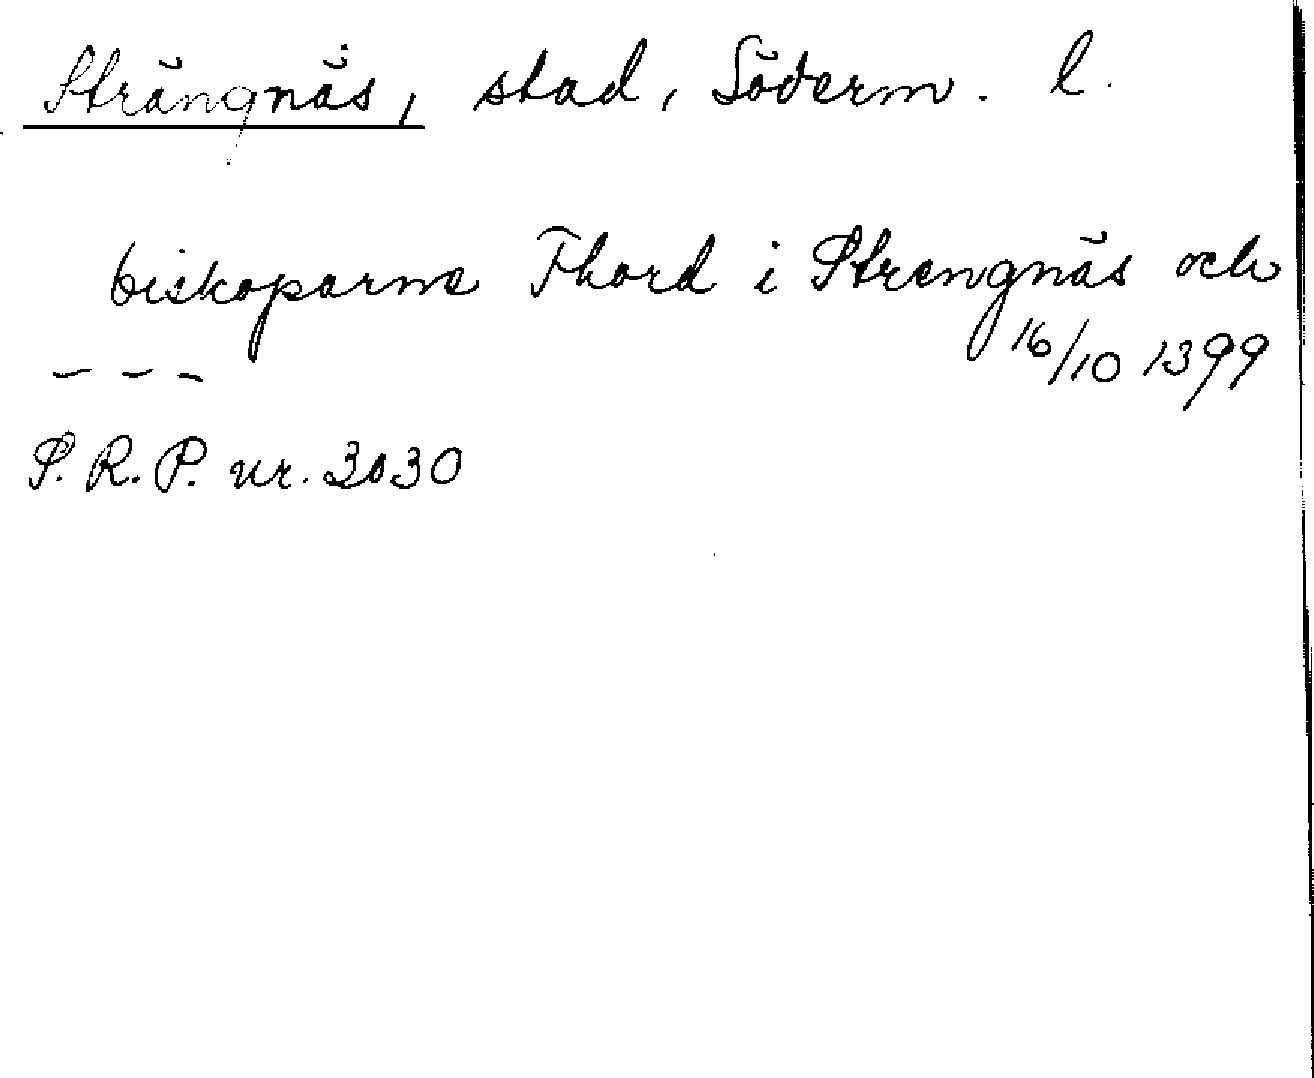 Strängnäs, stad, Söderm. l.
biskoparne Thord i Strengnäs och
--- 16/10 1399
S.R.P. nr. 3030